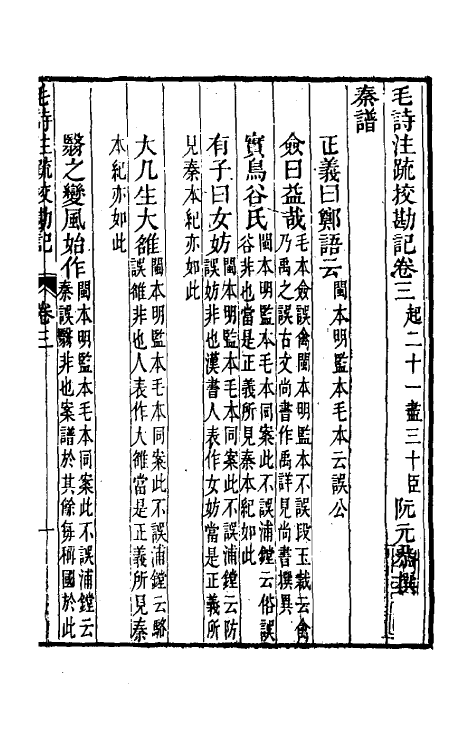 毛詩注疏挍勘記卷三 起二十一盡三十 臣 阮元恭撰
秦譜
正義曰鄭語云 閩本明監本毛本云誤公
僉曰益哉 毛本僉誤禽閩本明監本不誤段玉裁云禽
乃禹之誤古文尚書作禹詳見尚書撰異
實鳥谷氏 閩本明監本毛本同案此不誤浦鏜云俗誤
谷非也當是正義所見秦本紀如此
有子曰女妨 閩本明監本毛本同案此不誤浦鏜云防
誤妨非也漢書人表作女妨當是正義所
見秦本紀亦如此
大几生大雒 閩本明監本毛本同案此不誤浦鏜云駱
誤雒非也人表作大雒當是正義所見秦
本紀亦如此
翳之變風始作 閩本明監本毛本同案此不誤浦鏜云
秦誤翳非也案譜於其餘每稱國於此
毛詩注疏挍勘記 卷三 一